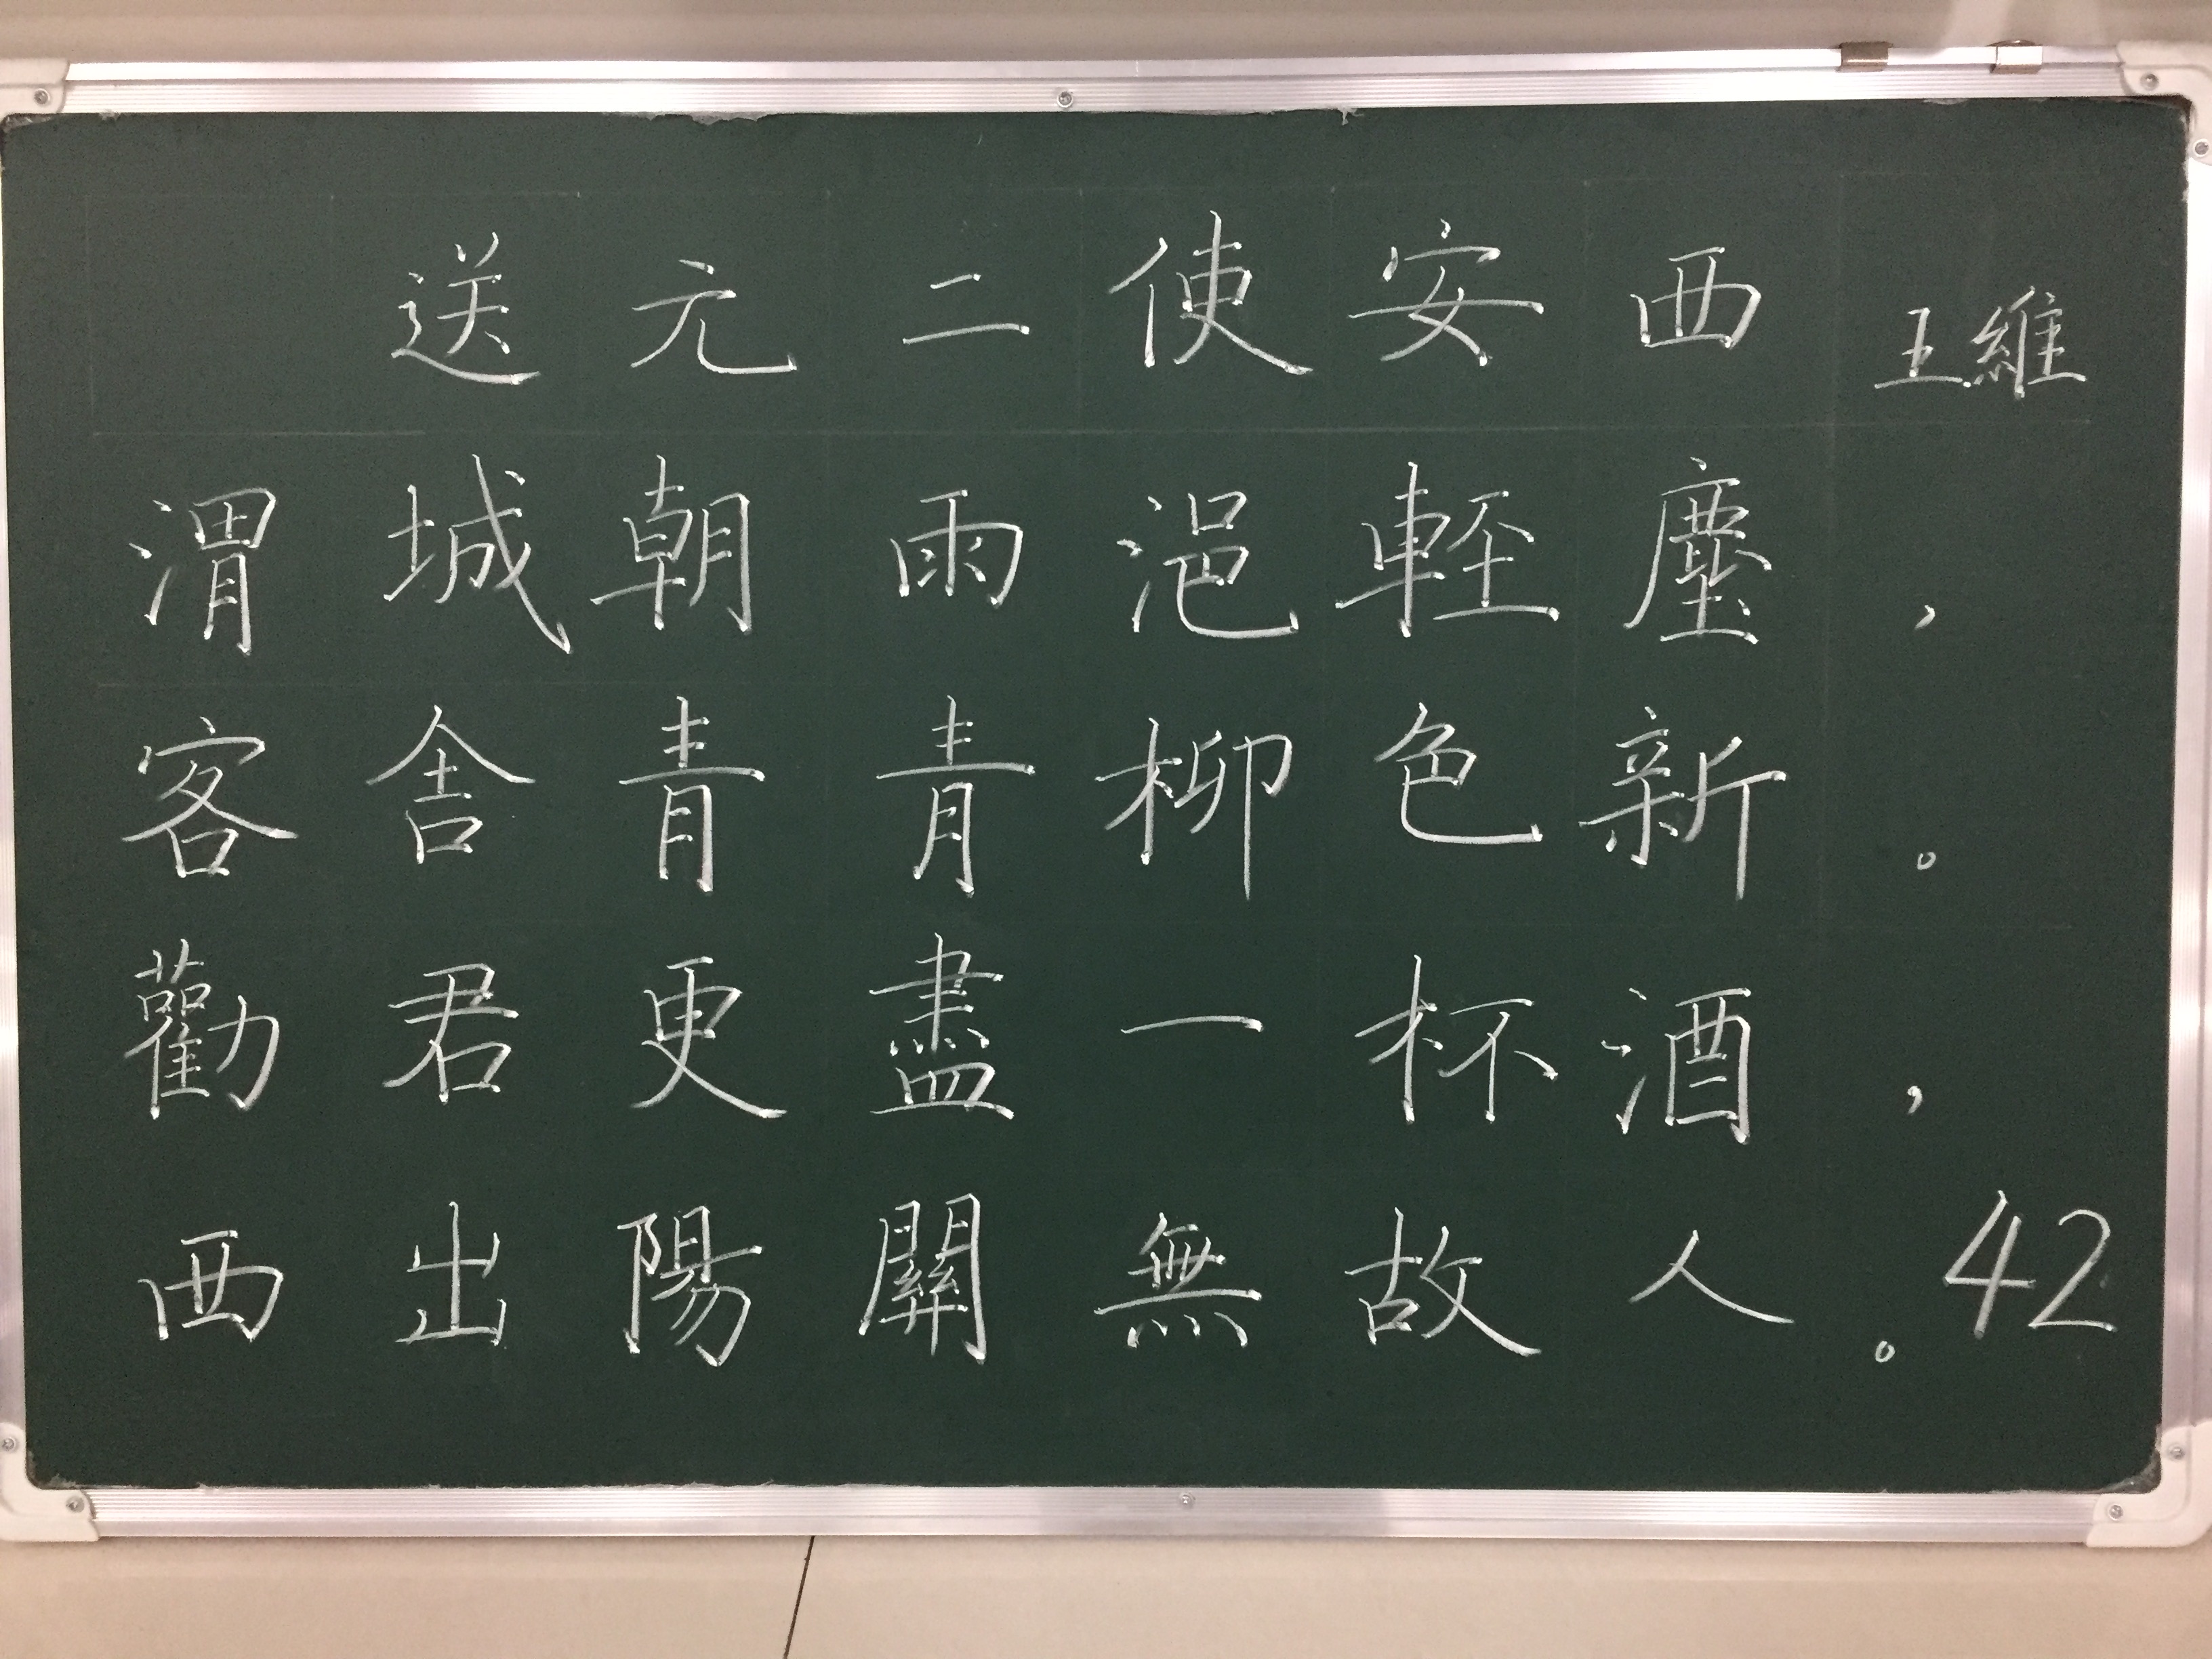 送元二使安西 王維
渭城朝雨浥輕塵，
客舍青青柳色新。
勸君更盡一杯酒，
西出陽關無故人。42